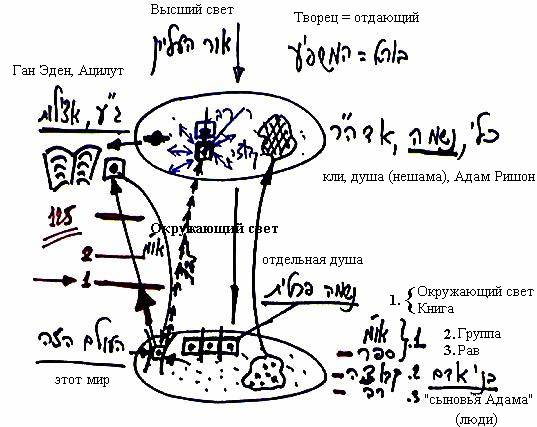 Высший свет
אור העליון
Творец = отдающий
בורא = המשפיע
Ган Эден, Ацилут
ג"ע, אצילות
רב
כלי, נשמה, אדה"ר
кли, душа (нешама), Адам Ришон
125
Окружающий свет
או"מ
2
1
отдельная душа
נשמה פרטית
העולם הזה
этот мир
1. { Окружающий свет
Книга
2. Группа
3. Рав
או"מ } 1.
ספר
קבוצה 2.
רב 3.
בני אדם
"сыновья Адама"
(люди)